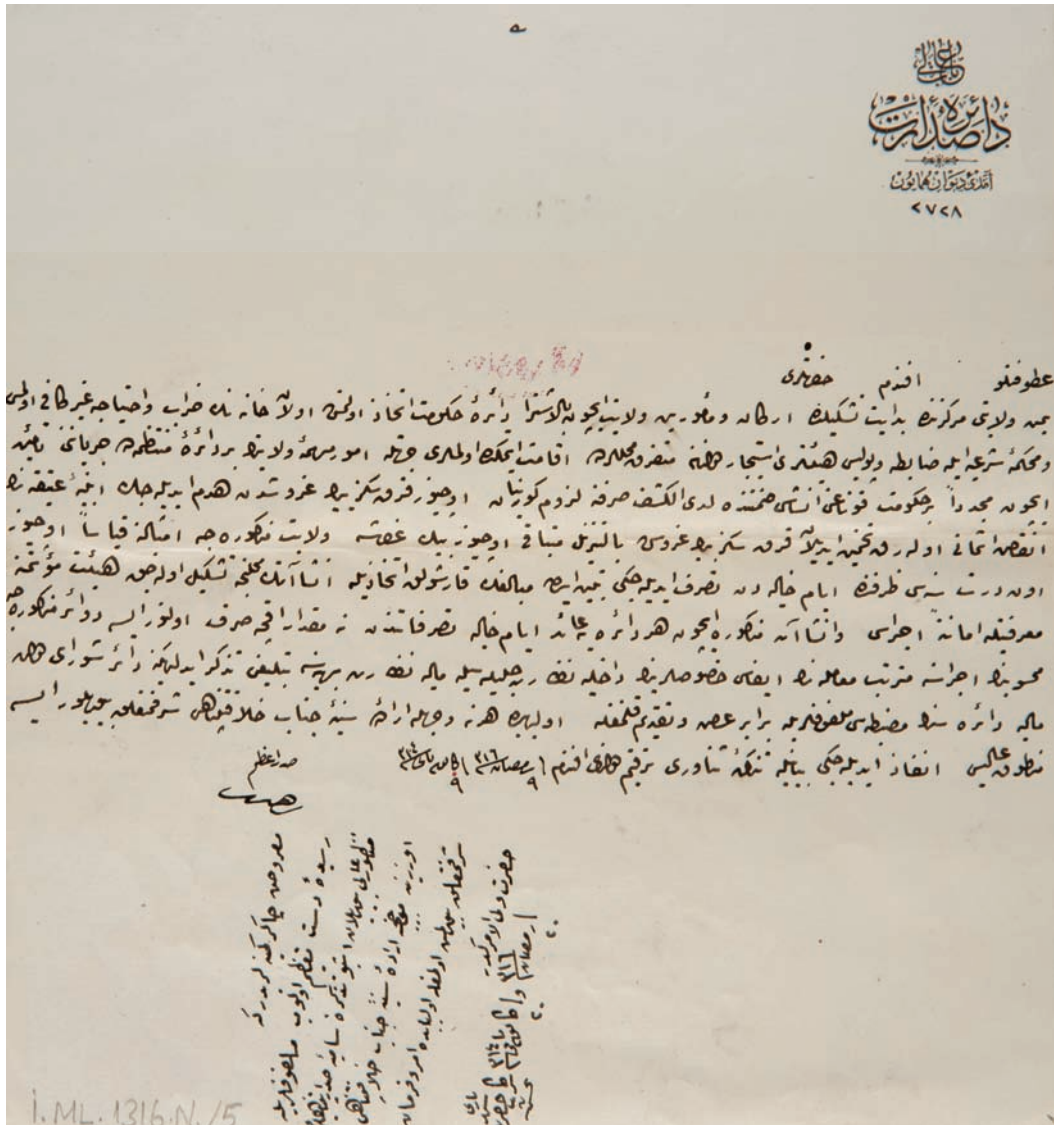 باب عالی
دائرهٔ صدارت
آمدی دیوان همایون
٢٧٢٨
عطوفتلو افندم حضرتلری
یمن ولایتی مرکزنده بدایت تشکیلنده ارکان و مأمورین ولایت ایچون بالاشترا دائرهٔ حکومت اتخاذ اولنمش اولان خانه نك خراب و احتیاجه غیر کافی اولمسی
و محکمهٔ شرعیه ایله ضابطه و پولیس هیئتلری استیجار اولنمش متفرق محللرده اقامت ایتمکده اولملری جهتله امور مهمهٔ ولایتك بر دائرهٔ منتظمه ده جریاننی تأمین
ایچون مجدداً بر حکومت قوناغی انشاسی ضمننده لدی الکشف صرفنه لزوم کورینان اوچیوز قرق سکز بیك غروشدن هدم ایدیله جك ابنیهٔ عتیقه نك
انقاض اثمانی اوله رق تخمین ایدیلان قرق سکز بیك غروشك بالتنزیل متباقی اوچیوز بیك غروشك ولایت مذکوره جه امثالنه قیاساً اوچیوز
اون درت سنه سی ظرفنده ایام خالیه دن تصرف ایدیله جکی تبین ایدن مبالغك قارشولق اتخاذیله انشاآتك محلنجه تشکیل اوله جق هیئت مؤتمنه
معرفتیله امانةً اجراسی و انشاآت مذکوره ایچون هر دائره یه عائد ایام خالیه تصرفاتندن نه مقدار اقچه صرف اولنور ایسه دوائر مذکوره جه
محسوبنك اجراسنه مترتب معامله نك ایفاسی خصوصلرینك داخلیه نظارت جلیله سیله مالیه نظارت بهیه سنه تبلیغی تذکر ایدلدیکنه دائر شورای دولت
مالیه دائره سنك مضبطه سی ملفوفلریله برابر عرض و تقدیم قلنمغله اولبابده هر نه وجهله ارادهٔ سنیهٔ جناب خلافتپناهی شرفمتعلق بیوریلور ایسه
منطوق عالیسی انفاذ ایدیله جکی بیانیله تذکرهٔ ثناوری ترقیم قلندی افندم فی ٩ رمضان سنه ٣١٦ فی ٩ کانون ثانی سنه ٣١٤
صدر اعظم
رفعت
معروض چاکر کمینه لریدر که
رسیدهٔ دست تعظیم اولوب ملفوفلریله
منظور عالی بیوریلان اشبو تذکرهٔ سامیهٔ صدارتپناهیلری
اوزرینه موجبنجه ارادهٔ سنیهٔ جناب خلافتپناهی
شرفمتعلق بیورلمش اولمغله اولبابده امر و فرمان
حضرت ولی الامرکدر
فی ٢٠ رمضان سنه ٣١٦ و فی ٢٠ کانون ثانی سنه ٣١٤
İ.ML.1316.N./5